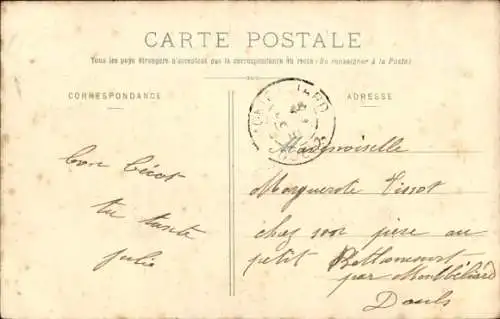 CARTE POSTALE
Tous les pays étrangers n'acceptent pas la correspondance au recto (Se renseigner à la Poste)
CORRESPONDANCE
ADRESSE
bon bécot
ta tante
julie
Mademoiselle
Marguerite Tissot
chez son père au
petit Bettoncourt
par Montbéliard
Doubs